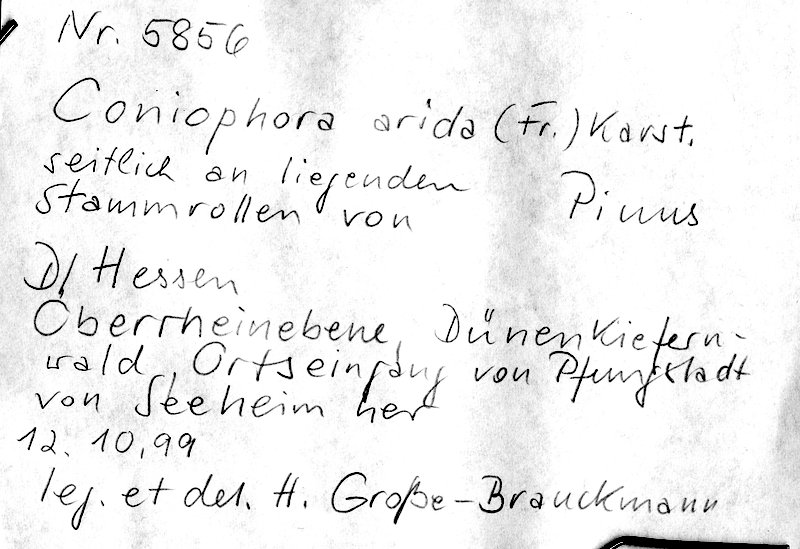 Nr. 5856
Coniophora arida (Fr.) Karst.
seitlich an liegenden
Stammrollen von Pinus
D/ Hessen
Oberrheinebene, Dünenkiefern-
wald, Ortseingang von Pfungstadt
von Seeheim her
12.10.99
leg. et det. H. Große-Brauckmann